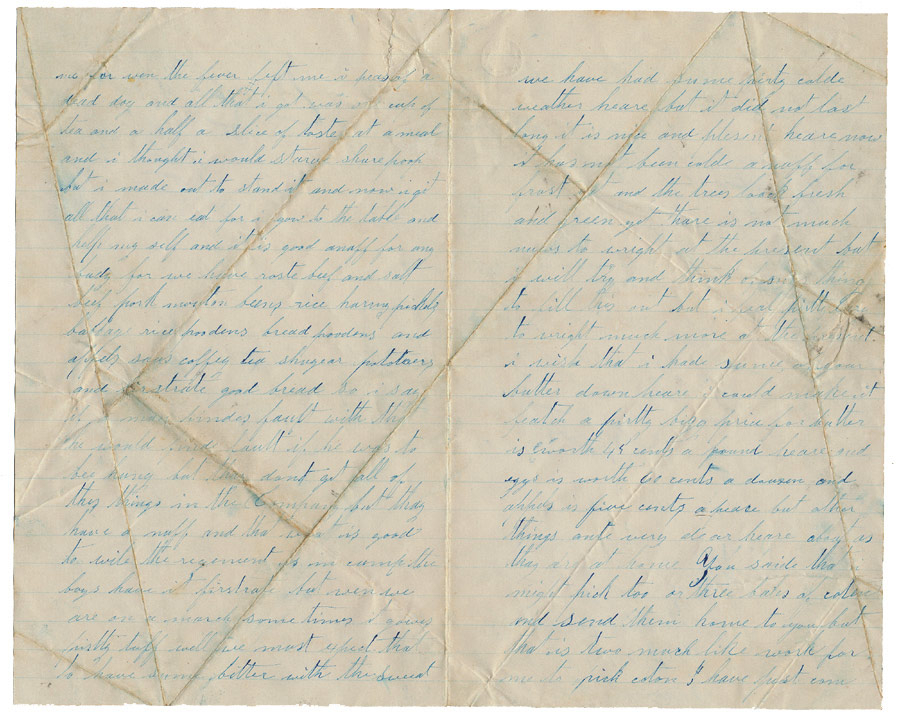 me for wen the fever left me i was a
bad day and all that i got was a cup of
tea and a half a slice of toste at a meal
and i thought i would starve shure
but i made out to stand it and now i git
all that i can eat for i gow to the table and
help my self and it is good anaff for any
body for we have roste beef and salt
beef pork mouton beens rice
rice poodens bread poodens and
appels sows coffey tea shugear potatoes
and firstrate good bread so i say
if a man findes fault with that
he would finde fault if he was to
bee hung but they dont get all of
this things in the Company but thay
have a naff and that what is good
to wile the regement is in camp the
boys have it firstrate but wen we
are on a march some times it gowes
pirtty tuff well we must expect that
to have some better with the sweet
we have had sume pirty colde
weather heare but it did not last
long it is nice and plesent heare now
it has not been colde anaff for
frost yet and the trees look fresh
and green yet thare is not much
nuws to wright at the present but
i will try and think of some thing
to fill this out but i
to wright much more at the present
i wish that i hade sume of your
butter down heare i could make it
fetch a pirtty big price for butter
is worth 45 cents a pound heare and
eggs is worth 60 cents a douzen and
appels is five cents a peace but other
things ante very dear heare about as
thay are at home You saide that i
might pick too or three bales of coten
and send them home to you but
that is two much like work for
me to pick coton I have just com